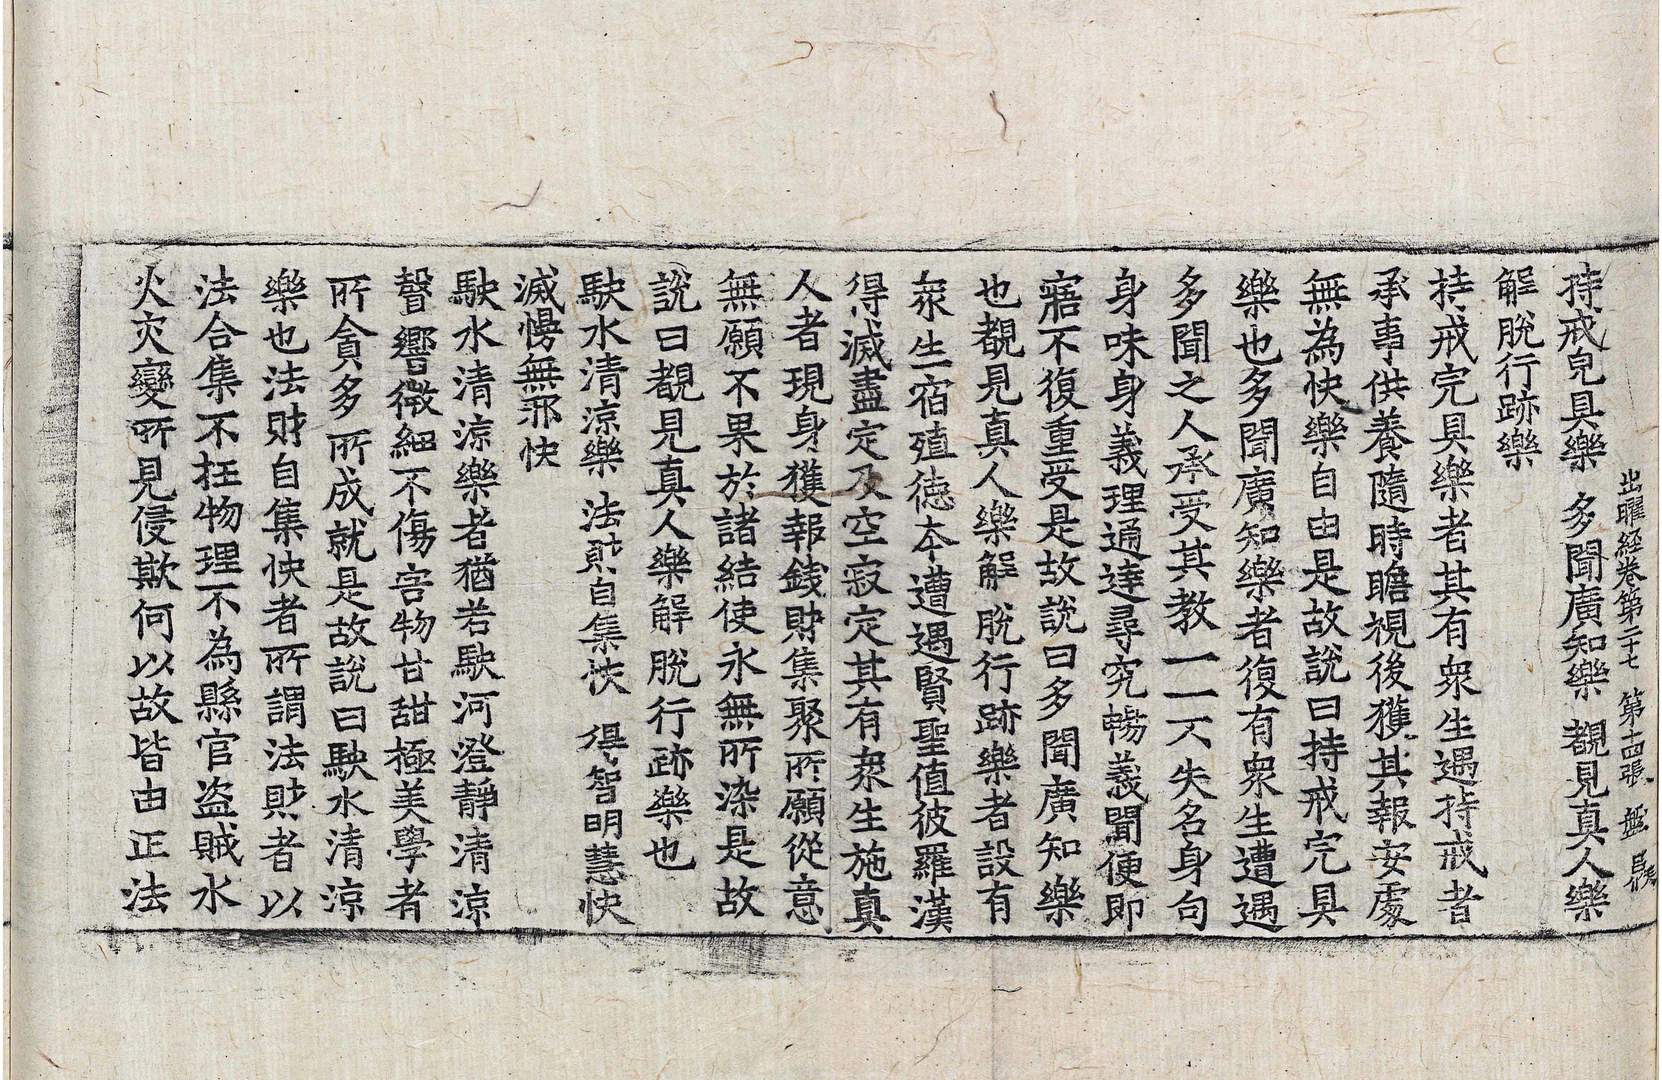 出曜経卷第二十七 第十四張 盤
持戒皃具樂 多聞廣知樂 覩見真人樂
解脫行跡樂
持戒完具樂者其有衆生遇持戒者
承事供養隨時瞻視後獲其報安處
無為快樂自由是故說曰持戒完具
樂也多聞廣知樂者復有衆生遭遇
多聞之人承受其教一一不失名身句
身味身義理通達尋究暢義聞便即
寤不復重受是故說曰多聞廣知樂
也覩見真人樂解脫行跡樂者設有
衆生宿殖德夲遭遇賢聖值彼羅漢
得滅盡定及空寂定其有衆生施真
人者現身獲報錢財集聚所願從意
無願不果於諸結使永無所染是故
說曰覩見真人樂解脫行跡樂也
駃水清涼樂 法財自集快 得智明慧快
滅慢無邪快
駃水清涼樂者猶若駃河澄靜清涼
聲響微細不傷害物甘甜極美學者
所貪多所成就是故說曰駃水清涼
樂也法財自集快者所謂法財者以
法合集不抂物理不為縣官盜賊水
火灾變所見侵欺何以故皆由正法